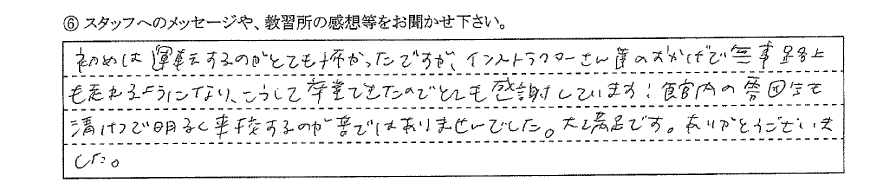 ⑥ スタッフへのメッセージや、教習所の感想等をお聞かせ下さい。
初めは運転するのがとても怖かったですが、インストラクターさん達のおかげで無事路上
も走れるようになり、こうして卒業できたのでとても感謝しています!館内の雰囲気も
清けつで明るく車校するのが苦ではありませんでした。大満足です。ありがとうございま
した。